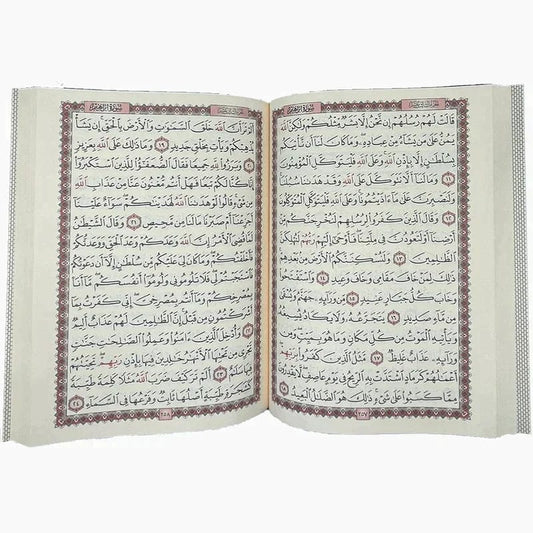 الجُزْءُ الثَّالِثَ عَشَرَ سُورَةُ إِبْرَاهِيمَ
قَالَتْ لَهُمْ رُسُلُهُمْ إِن نَّحْنُ إِلَّا بَشَرٌ مِّثْلُكُمْ وَلَٰكِنَّ ٱللَّهَ
يَمُنُّ عَلَىٰ مَن يَشَآءُ مِنْ عِبَادِهِۦ ۖ وَمَا كَانَ لَنَآ أَن نَّأْتِيَكُم
بِسُلْطَٰنٍ إِلَّا بِإِذْنِ ٱللَّهِ ۚ وَعَلَى ٱللَّهِ فَلْيَتَوَكَّلِ ٱلْمُؤْمِنُونَ
١١ وَمَا لَنَآ أَلَّا نَتَوَكَّلَ عَلَى ٱللَّهِ وَقَدْ هَدَىٰنَا سُبُلَنَا ۚ
وَلَنَصْبِرَنَّ عَلَىٰ مَآ ءَاذَيْتُمُونَا ۚ وَعَلَى ٱللَّهِ فَلْيَتَوَكَّلِ ٱلْمُتَوَكِّلُونَ
١٢ وَقَالَ ٱلَّذِينَ كَفَرُوا۟ لِرُسُلِهِمْ لَنُخْرِجَنَّكُم مِّنْ
أَرْضِنَآ أَوْ لَتَعُودُنَّ فِى مِلَّتِنَا ۖ فَأَوْحَىٰٓ إِلَيْهِمْ رَبُّهُمْ لَنُهْلِكَنَّ
ٱلظَّٰلِمِينَ ١٣ وَلَنُسْكِنَنَّكُمُ ٱلْأَرْضَ مِنۢ بَعْدِهِمْ ۚ
ذَٰلِكَ لِمَنْ خَافَ مَقَامِى وَخَافَ وَعِيدِ ١٤ وَٱسْتَفْتَحُوا۟
وَخَابَ كُلُّ جَبَّارٍ عَنِيدٍ ١٥ مِّن وَرَآئِهِۦ جَهَنَّمُ وَيُسْقَىٰ
مِن مَّآءٍ صَدِيدٍ ١٦ يَتَجَرَّعُهُۥ وَلَا يَكَادُ يُسِيغُهُۥ
وَيَأْتِيهِ ٱلْمَوْتُ مِن كُلِّ مَكَانٍ وَمَا هُوَ بِمَيِّتٍ ۖ وَمِن
وَرَآئِهِۦ عَذَابٌ غَلِيظٌ ١٧ مَّثَلُ ٱلَّذِينَ كَفَرُوا۟ بِرَبِّهِمْ ۖ
أَعْمَٰلُهُمْ كَرَمَادٍ ٱشْتَدَّتْ بِهِ ٱلرِّيحُ فِى يَوْمٍ عَاصِفٍ ۖ لَّا يَقْدِرُونَ
مِمَّا كَسَبُوا۟ عَلَىٰ شَىْءٍ ۚ ذَٰلِكَ هُوَ ٱلضَّلَٰلُ ٱلْبَعِيدُ ١٨
٢٥٧
الجُزْءُ الثَّالِثَ عَشَرَ سُورَةُ إِبْرَاهِيمَ
أَلَمْ تَرَ أَنَّ ٱللَّهَ خَلَقَ ٱلسَّمَٰوَٰتِ وَٱلْأَرْضَ بِٱلْحَقِّ ۚ إِن يَشَأْ
يُذْهِبْكُمْ وَيَأْتِ بِخَلْقٍ جَدِيدٍ ١٩ وَمَا ذَٰلِكَ عَلَى ٱللَّهِ بِعَزِيزٍ
٢٠ وَبَرَزُوا۟ لِلَّهِ جَمِيعًا فَقَالَ ٱلضُّعَفَٰٓؤُا۟ لِلَّذِينَ ٱسْتَكْبَرُوٓا۟
إِنَّا كُنَّا لَكُمْ تَبَعًا فَهَلْ أَنتُم مُّغْنُونَ عَنَّا مِنْ عَذَابِ ٱللَّهِ
مِن شَىْءٍ ۚ قَالُوا۟ لَوْ هَدَىٰنَا ٱللَّهُ لَهَدَيْنَٰكُمْ ۖ سَوَآءٌ عَلَيْنَآ
أَجَزِعْنَآ أَمْ صَبَرْنَا مَا لَنَا مِن مَّحِيصٍ ٢١ وَقَالَ ٱلشَّيْطَٰنُ
لَمَّا قُضِىَ ٱلْأَمْرُ إِنَّ ٱللَّهَ وَعَدَكُمْ وَعْدَ ٱلْحَقِّ وَوَعَدتُّكُمْ
فَأَخْلَفْتُكُمْ ۖ وَمَا كَانَ لِىَ عَلَيْكُم مِّن سُلْطَٰنٍ إِلَّآ أَن دَعَوْتُكُمْ
فَٱسْتَجَبْتُمْ لِى ۖ فَلَا تَلُومُونِى وَلُومُوٓا۟ أَنفُسَكُم ۖ مَّآ أَنَا۠
بِمُصْرِخِكُمْ وَمَآ أَنتُم بِمُصْرِخِىَّ ۖ إِنِّى كَفَرْتُ بِمَآ
أَشْرَكْتُمُونِ مِن قَبْلُ ۗ إِنَّ ٱلظَّٰلِمِينَ لَهُمْ عَذَابٌ أَلِيمٌ
٢٢ وَأُدْخِلَ ٱلَّذِينَ ءَامَنُوا۟ وَعَمِلُوا۟ ٱلصَّٰلِحَٰتِ جَنَّٰتٍ
تَجْرِى مِن تَحْتِهَا ٱلْأَنْهَٰرُ خَٰلِدِينَ فِيهَا بِإِذْنِ رَبِّهِمْ ۖ تَحِيَّتُهُمْ
فِيهَا سَلَٰمٌ ٢٣ أَلَمْ تَرَ كَيْفَ ضَرَبَ ٱللَّهُ مَثَلًا كَلِمَةً طَيِّبَةً
كَشَجَرَةٍ طَيِّبَةٍ أَصْلُهَا ثَابِتٌ وَفَرْعُهَا فِى ٱلسَّمَآءِ ٢٤
٢٥٨